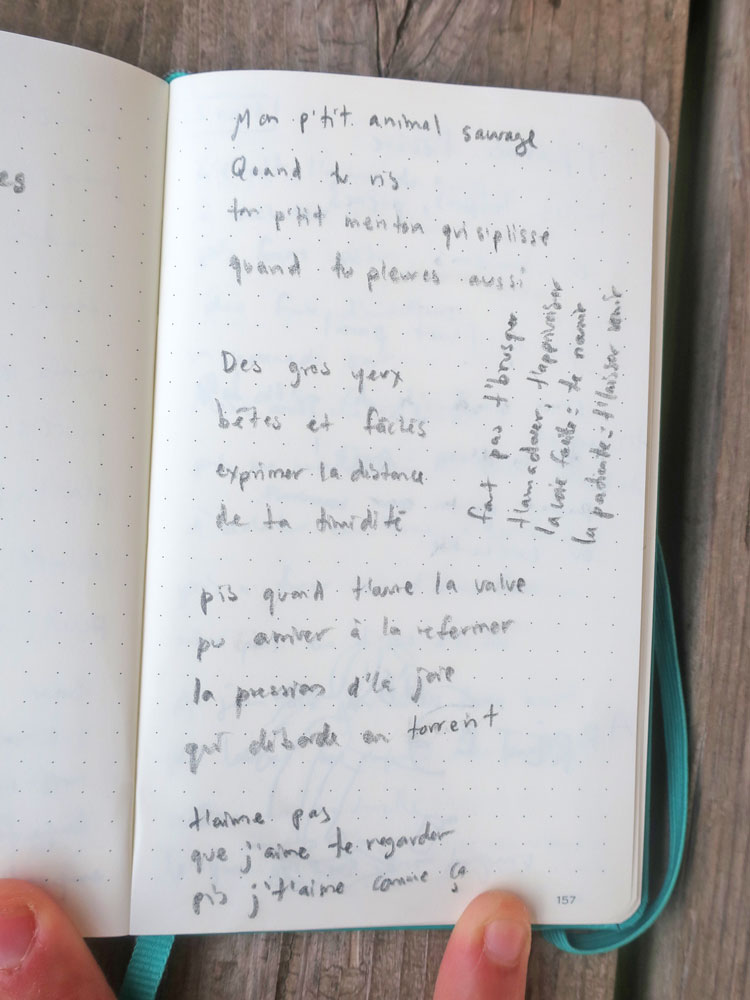 es
Mon p'tit animal sauvage
Quand tu ris
ton p'tit menton qui s'plisse
quand tu pleures aussi
Des gros yeux
bêtes et fâchés
exprimer la distance
de ta timidité
pis quand t'ouvre la valve
pu arriver à la refermer
la pression d'la joie
qui déborde en torrent
t'aime pas
que j'aime te regarder
pis j't'aime comme ça
faut pas t'brusquer
t'amadouer, t'apprivoiser
la voie facile: te nourrir
la patiente: t'laisser venir
157